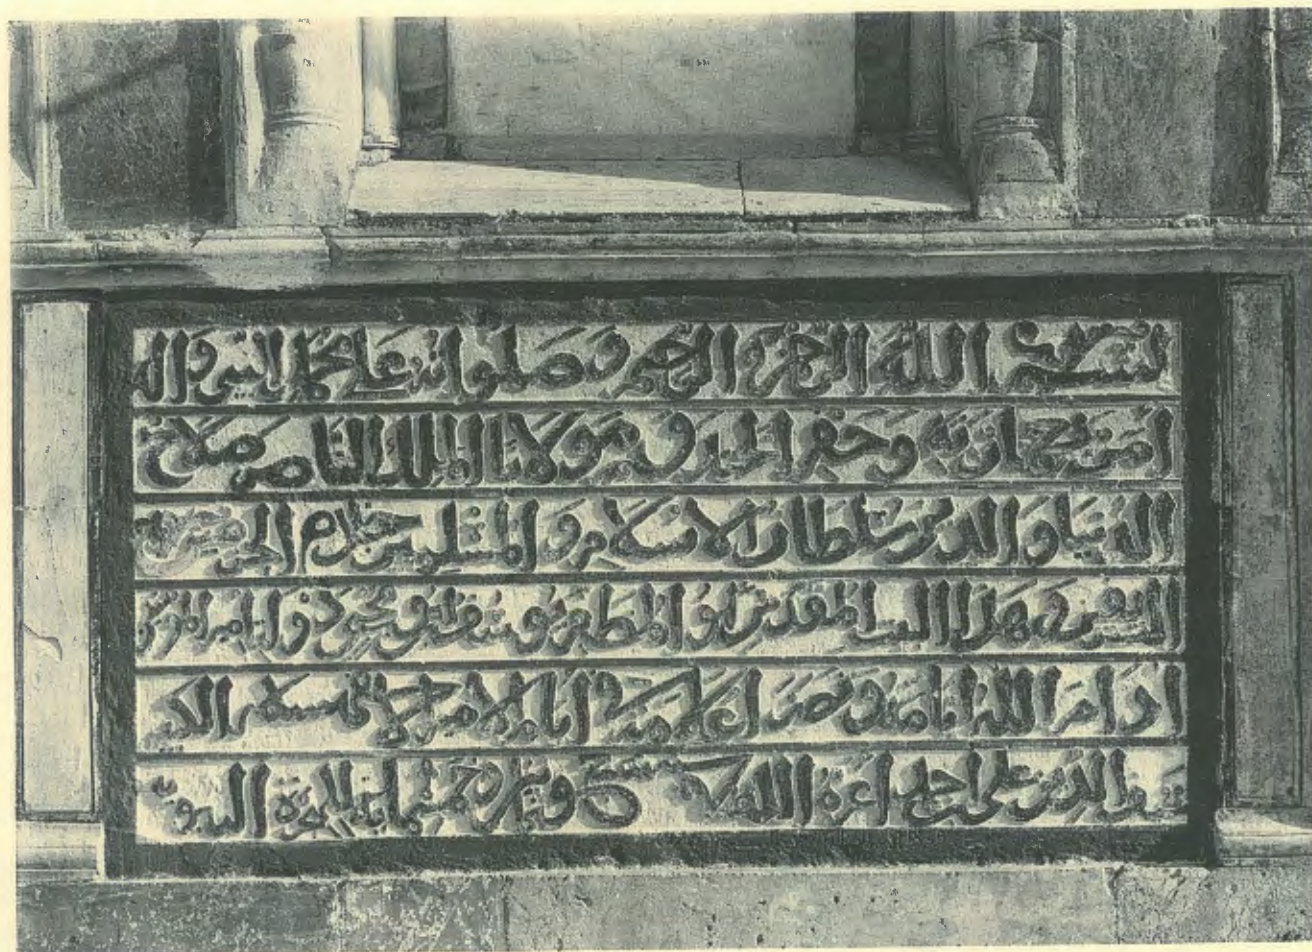 بسم الله الرحمن الرحيم وصلواته على محمد النبي واله
امر بعمارته وحفر الخندق مولانا الملك الناصر صلاح
الدنيا والدين سلطان الاسلام والمسلمين خادم الحرمين
الشريفين وهذا البيت المقدس ابو المظفر يوسف بن ايوب محيي دولة امير المؤمنين
ادام الله ايامه ونصر اعلامه في ايام الامير الكبير
سيف الدين علي بن احمد اعزه الله في سنة سبع وثمنين وخمسمائة للهجرة النبوية